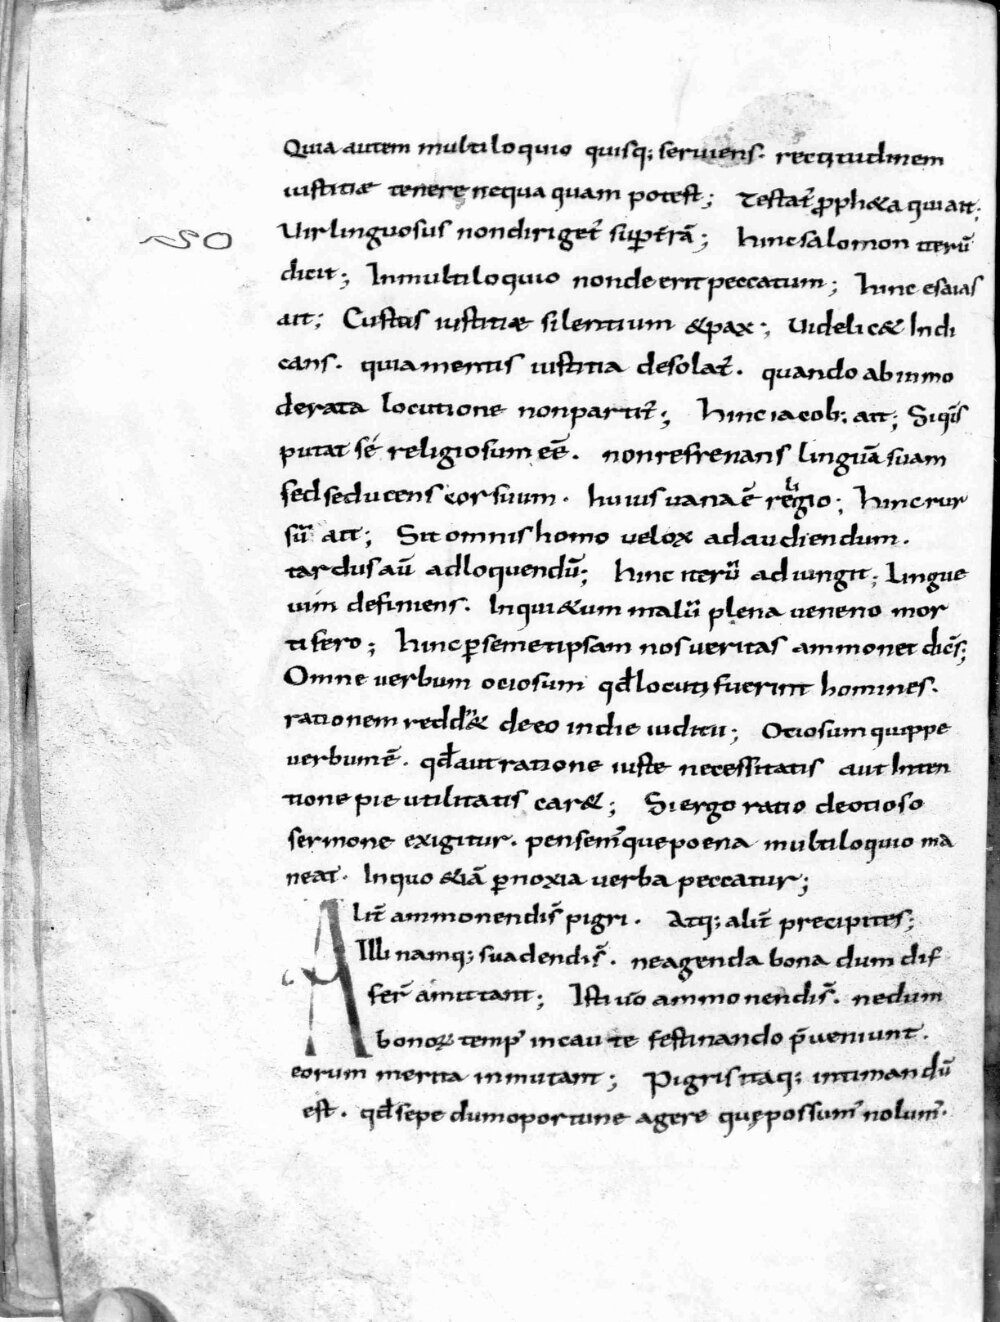 Quia autem multiloquio quisq; serviens. rectitudinem
iustitiæ tenere nequaquam potest; Testat᷑ ꝓph&a qui ait;
Vir linguosus non diriget᷑ suꝑ t᷑rā; hinc salomon iterū
dicit; In multiloquio non deerit peccatum; hinc esaias
ait; Cultus iustitiæ silentium & pax; Videlic& Indi
cans. quia mentis iustitia desolat᷑. quando ab inmo
derata locutione non partit᷑; hinc iacob; ait; Siq̄is
putat sé religiosum eē̄. non refrenans linguā suam
sed seducens cor suum. huius vana ē religio; hinc rur
sū ait; Sit omnis homo velox ad audiendum.
tardus aū ad loquendū; hinc iterū adiungit; Lingue
vim definiens. Inqui&um malū plena veneno mor
tifero; hinc ꝑ semetipsam nos veritas ammonet dic̄s;
Omne verbum ociosum qđ locuti fuerint homines.
rationem redd& de eo in die iuditii; Otiosum quippe
verbum ē. qđ aut ratione iuste necessitatis aut Inten
tione pie utilitatis car&; Si ergo ratio de otioso
sermone exigitur. pensem᷒ que poena multiloquio ma
neat. In quo &iā ꝑ noxia verba peccatur;
Alit᷑ ammonendi s᷑ pigri. Atq; alit᷑ precipites;
Illi namq; suadendi s᷑. ne agenda bona dum dif
fer᷑ amittant; Isti ṽo ammonendi s᷑. ne dum
bonoꝝ temp᷒ incaute festinando p̄veniunt.
eorum merita inmutant; Pigris itaq; intimandū
est. qđ sepe dum oportune agere quę possum᷒ nolum᷒.